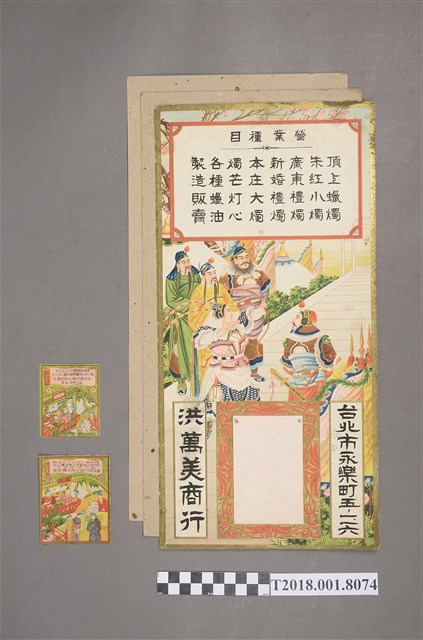 營業種目
頂上蠟燭
朱紅小燭
廣東禮燭
新婚禮燭
本庄大燭
燭芒灯心
各種蠟油
製造販賣
台北市永樂町五ノ二六
洪萬美商行
T2018.001.8074